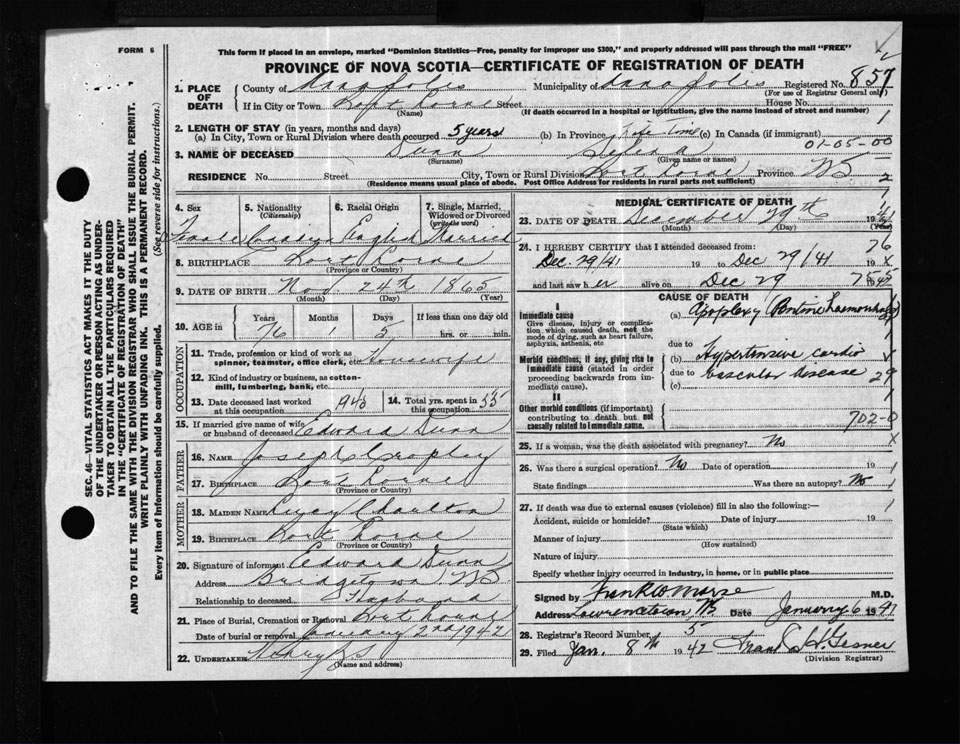 FORM 6
This form if placed in an envelope, marked "Dominion Statistics—Free, penalty for improper use $300," and properly addressed will pass through the mail "FREE"
PROVINCE OF NOVA SCOTIA—CERTIFICATE OF REGISTRATION OF DEATH
SEC. 46—VITAL STATISTICS ACT MAKES IT THE DUTY
OF THE UNDERTAKER OR PERSON ACTING AS UNDER-
TAKER TO OBTAIN ALL THE PARTICULARS REQUIRED
IN THE "CERTIFICATE OF REGISTRATION OF DEATH"
AND TO FILE THE SAME WITH THE DIVISION REGISTRAR WHO SHALL ISSUE THE BURIAL PERMIT.
WRITE PLAINLY WITH UNFADING INK. THIS IS A PERMANENT RECORD.
Every item of Information should be carefully supplied. (See reverse side for instructions.)
1. PLACE OF DEATH
County of Annapolis Municipality of Annapolis Registered No. 857
(For use of Registrar General only)
If in City or Town Port Lorne Street House No.
(Name) (If death occurred in a hospital or institution, give the name instead of street and number)
2. LENGTH OF STAY (in years, months and days)
(a) In City, Town or Rural Division where death occurred 5 years (b) In Province Life time (c) In Canada (if immigrant)
01-05-00
3. NAME OF DECEASED Dunn
(Surname) (Given name or names)
RESIDENCE No. Street City, Town or Rural Division Port Lorne Province NS
(Residence means usual place of abode. Post Office Address for residents in rural parts not sufficient)
2
4. Sex 5. Nationality (Citizenship) 6. Racial Origin 7. Single, Married, Widowed or Divorced (write the word)
English Married
8. BIRTHPLACE Port Lorne
(Province or Country)
9. DATE OF BIRTH Nov 24th 1865
(Month) (Day) (Year)
10. AGE in Years Months Days If less than one day old
76 1 5 hrs. or min.
OCCUPATION
11. Trade, profession or kind of work as spinner, teamster, office clerk, etc. Housewife
12. Kind of industry or business, as cotton-mill, lumbering, bank, etc.
13. Date deceased last worked at this occupation 1940 14. Total yrs. spent in this occupation 55
15. If married give name of wife or husband of deceased Edward Dunn
FATHER
16. NAME Joseph
17. BIRTHPLACE Port Lorne
(Province or Country)
MOTHER
18. MAIDEN NAME Lucy Charlton
19. BIRTHPLACE Port Lorne
(Province or Country)
20. Signature of informant Edward Dunn
Address Bridgetown NS
Relationship to deceased Husband
21. Place of Burial, Cremation or Removal Port Lorne
Date of burial or removal January 2nd 1942
22. UNDERTAKER
(Name and address)
MEDICAL CERTIFICATE OF DEATH
23. DATE OF DEATH December 29th 19
(Month) (Day) (Year)
24. I HEREBY CERTIFY that I attended deceased from: 76
Dec 29/41 19 to Dec 29/41 19
and last saw her alive on Dec 29 19
CAUSE OF DEATH
I
Immediate cause
Give disease, injury or complication, which caused death, not the mode of dying, such as heart failure, asphyxia, asthenia, etc.
(a) Apoplexy Pontine haemorrhage
due to
Morbid conditions, if any, giving rise to immediate cause (stated in order proceeding backwards from immediate cause).
(b) Hypertensive cardio
due to vascular disease 29
(c)
II
Other morbid conditions (if important) contributing to death but not causally related to immediate cause.
702-0
25. If a woman, was the death associated with pregnancy? No
26. Was there a surgical operation? No Date of operation 19
State findings Was there an autopsy? No
27. If death was due to external causes (violence) fill in also the following:—
Accident, suicide or homicide? Date of injury 19
(State which)
Manner of injury
(How sustained)
Nature of injury
Specify whether injury occurred in industry, in home, or in public place
Signed by Frank W Morse M.D.
Address Lawrencetown NS Date January 6 19
28. Registrar's Record Number 5
29. Filed Jan. 8th 1942 Gesner
(Division Registrar)